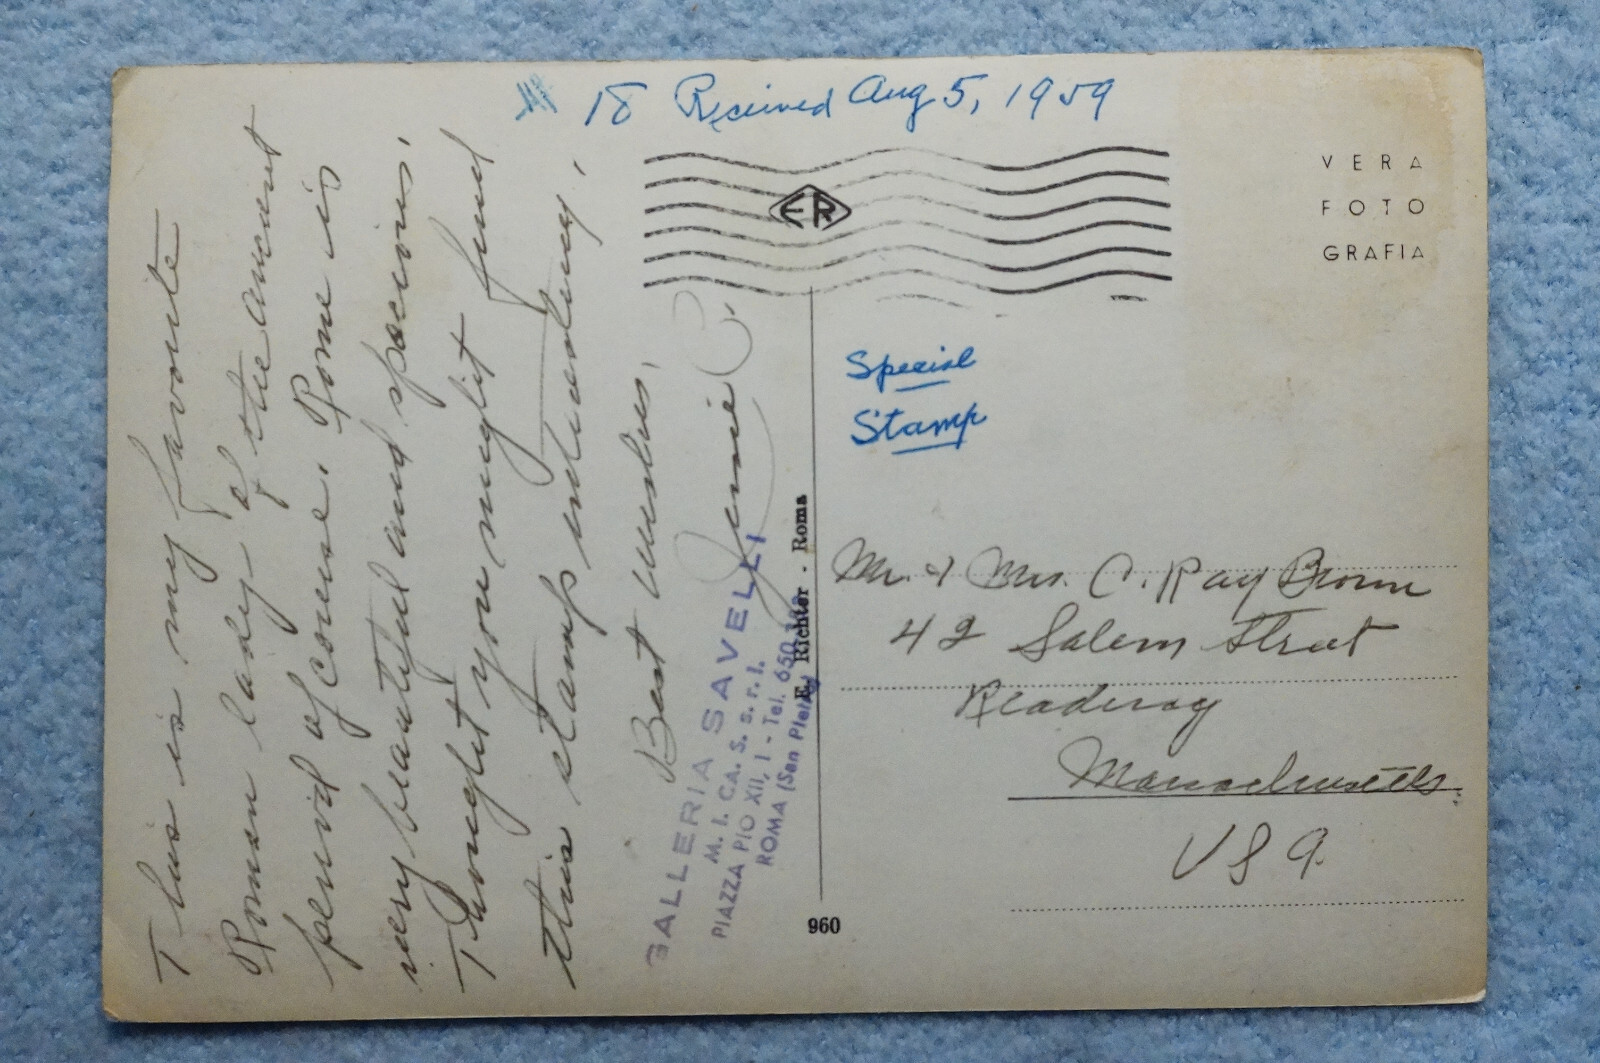 18 Received Aug 5, 1959
This is my favourite
Roman lady - of the ancient
period of course. Rome is
very beautiful and spacious.
Thought you might find
this stamp interesting.
Best wishes,
Jennie C.
GALLERIA SAVELLI
M. I. CA. S. s. r. l.
PIAZZA PIO XII, 1 - Tel. 650
ROMA (San Pietro)
E. Richter - Roma
960
ER
VERA
FOTO
GRAFIA
Special
Stamp
Mr. & Mrs. C. Ray Brown
42 Salem Street
Reading
Massachusetts.
USA